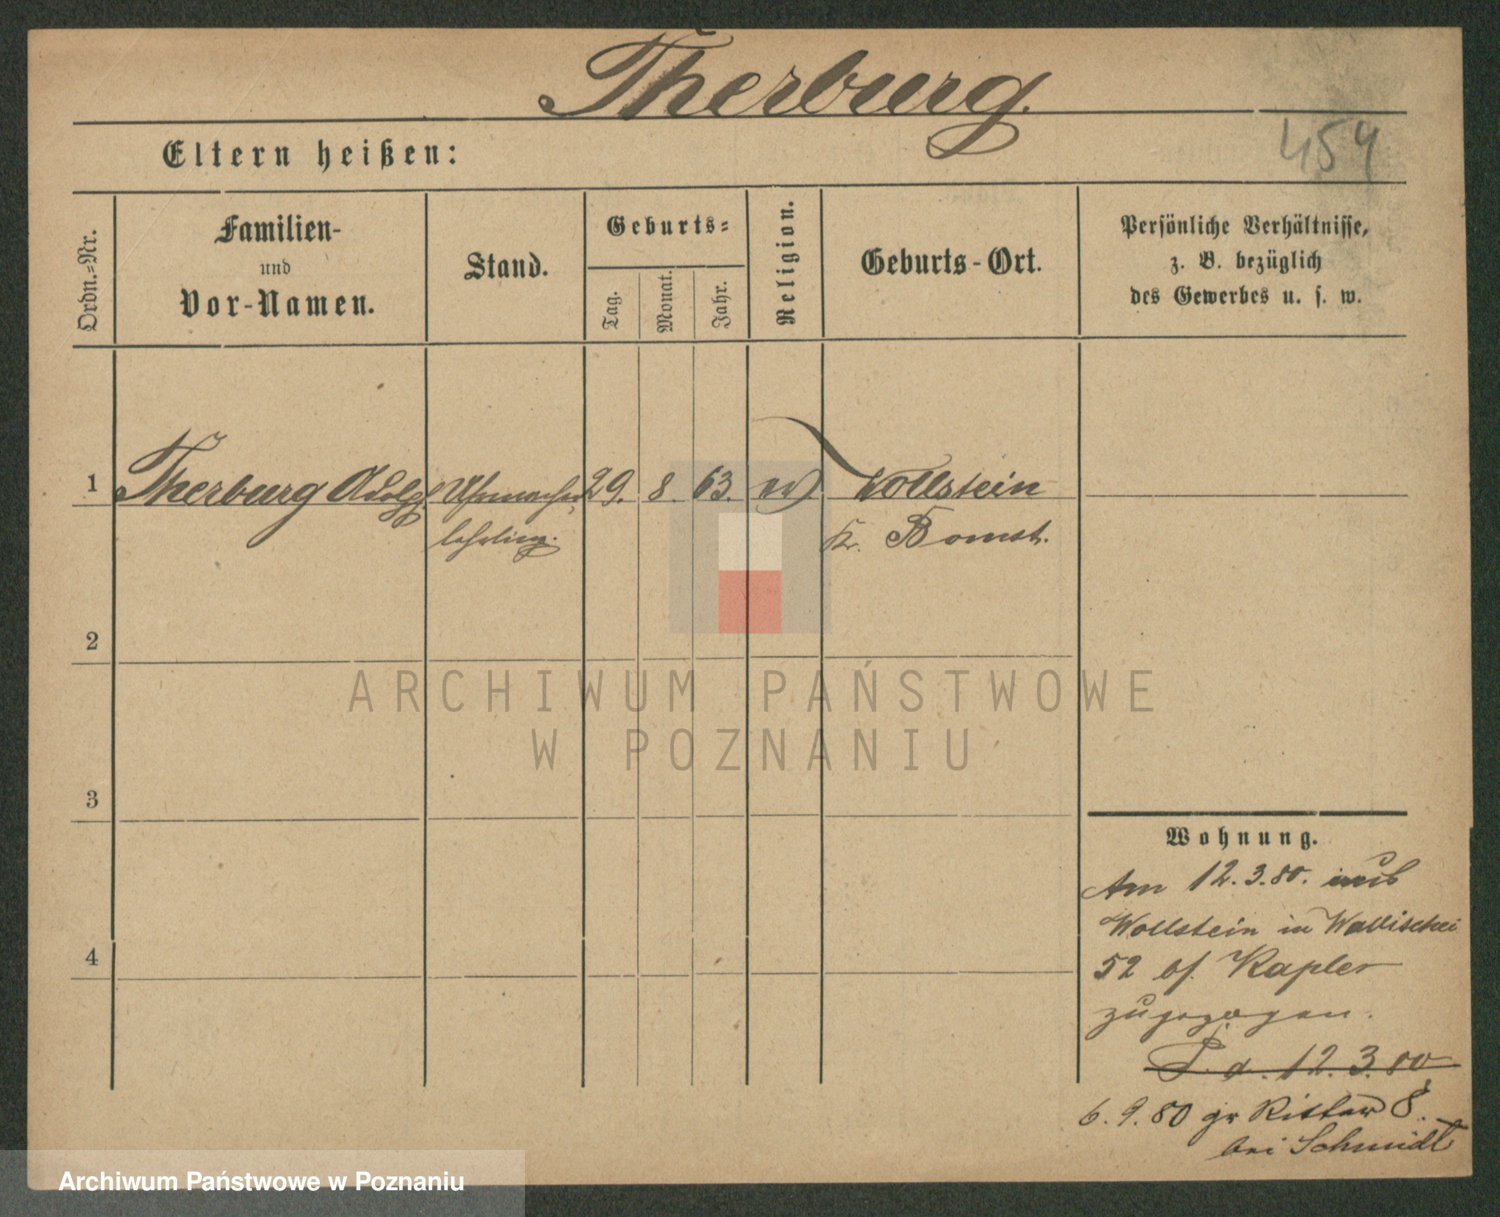 Therburg.
454
Eltern heißen:
Ordn.-Nr.
Familien-
und
Vor-Namen.
Stand.
Geburts-
Tag.
Monat.
Jahr.
Religion.
Geburts-Ort.
Persönliche Verhältnisse,
z. B. bezüglich
des Gewerbes u. s. w.
1 Therburg Adolf Uhrmacher 29. 8. 63. Wollstein
lehrling. Kr. Bomst.
2
3
4
Wohnung.
Am 12.3.80. aus
Wollstein in Wallischei
52 bei Kapler
zugezogen.
P. d. 12.3.80
6.9.80 gr Ritter 8.
bei Schmidt
ARCHIWUM PAŃSTWOWE
W POZNANIU
Archiwum Państwowe w Poznaniu